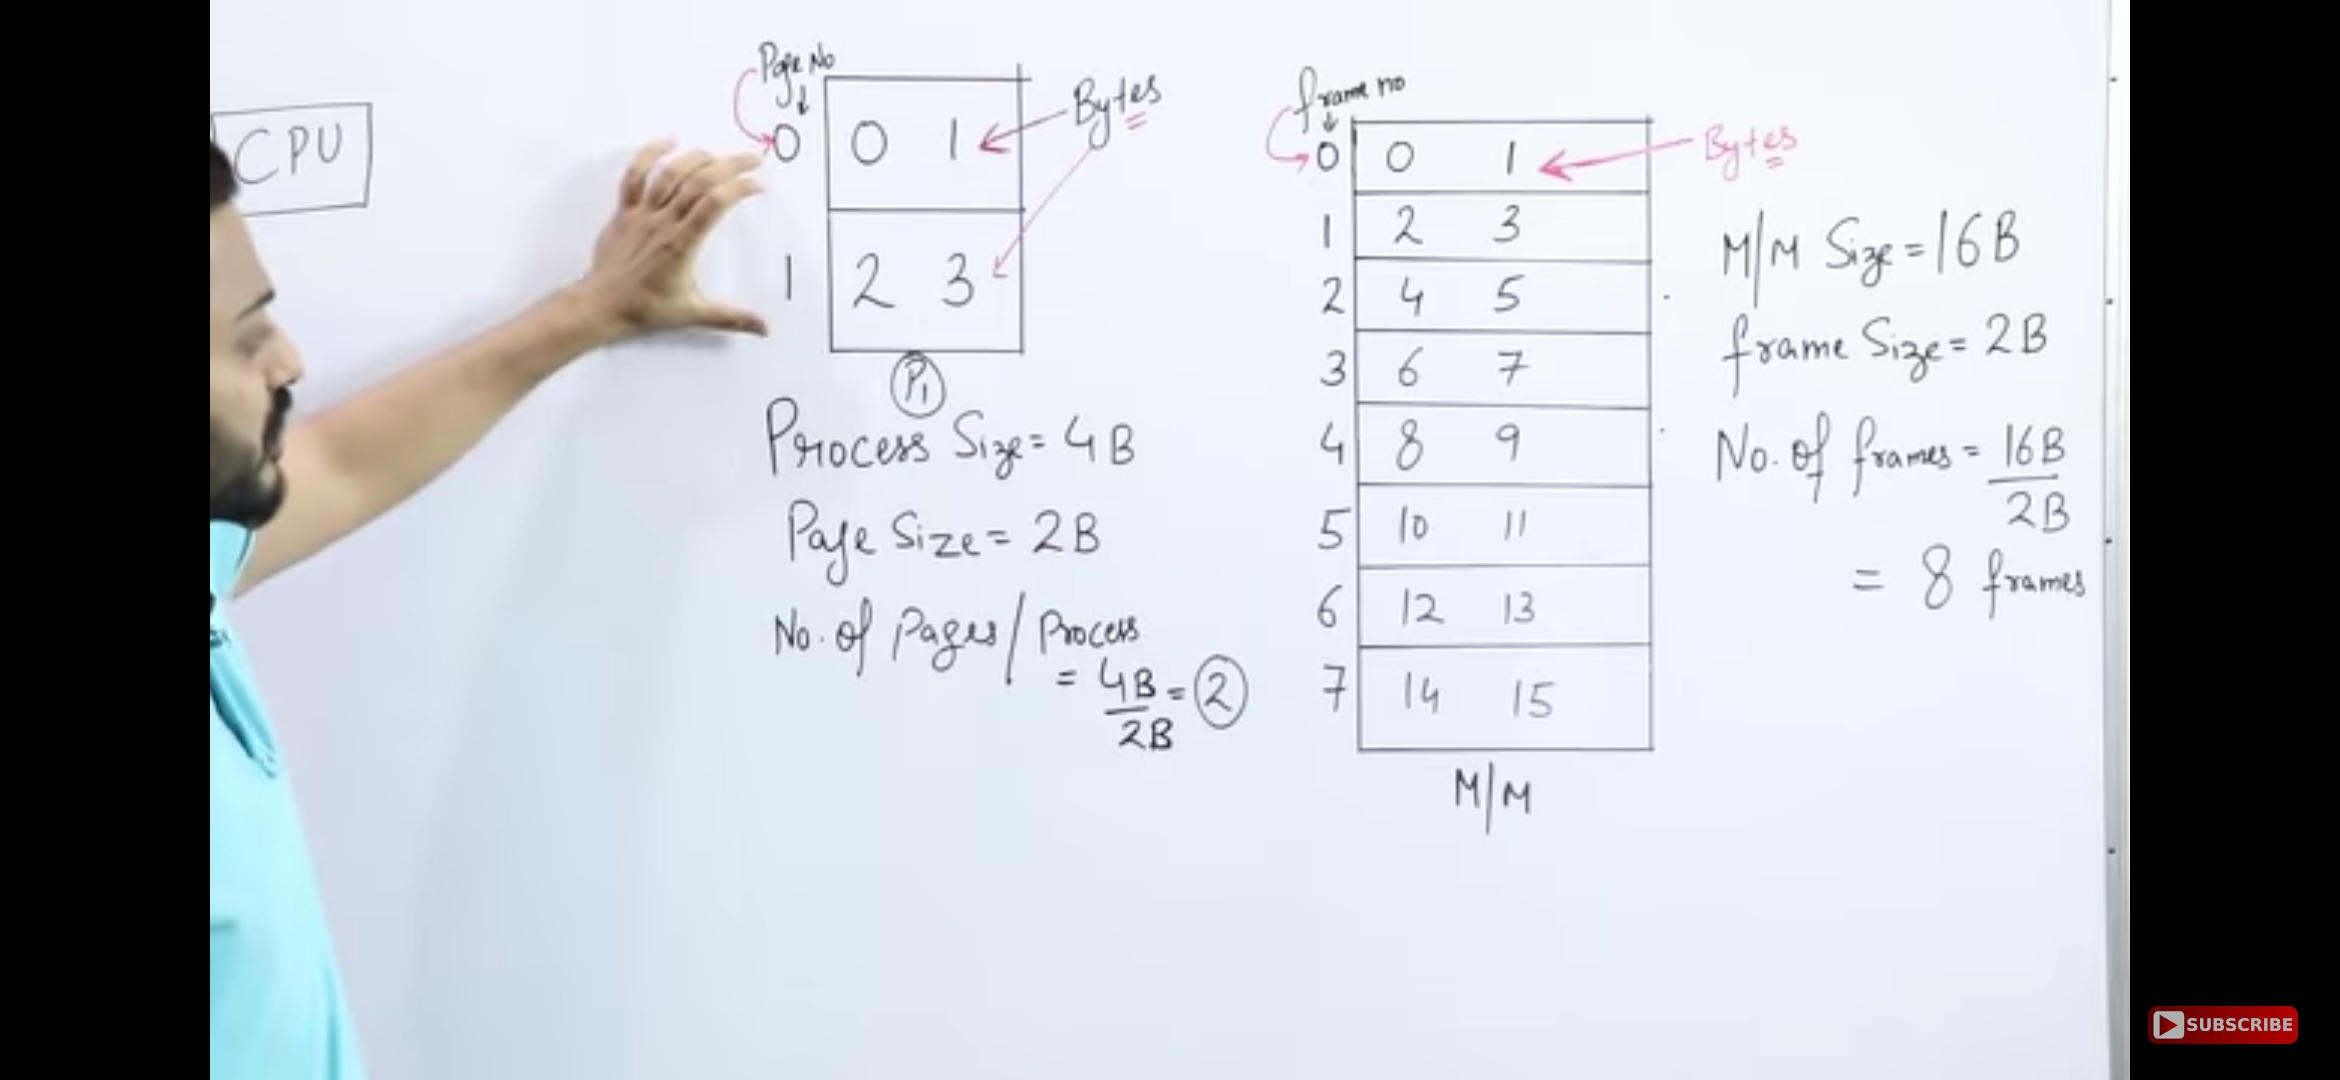 CPU
Page No
0 0 1
Bytes
1 2 3
P1
Process Size = 4B
Page Size = 2B
No. of Pages / Process
= 4B = 2
2B
frame no
0 0 1
Bytes
1 2 3
2 4 5
3 6 7
4 8 9
5 10 11
6 12 13
7 14 15
M/M
M/M Size = 16B
frame Size = 2B
No. of frames = 16B
2B
= 8 frames
SUBSCRIBE